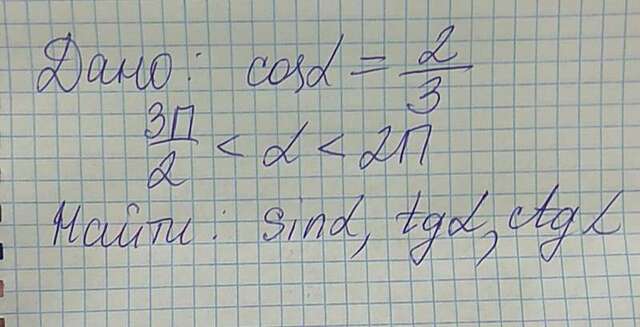 Дано: cosα = 2/3
3П/2 < α < 2П
Найти: sinα, tgα, ctgα